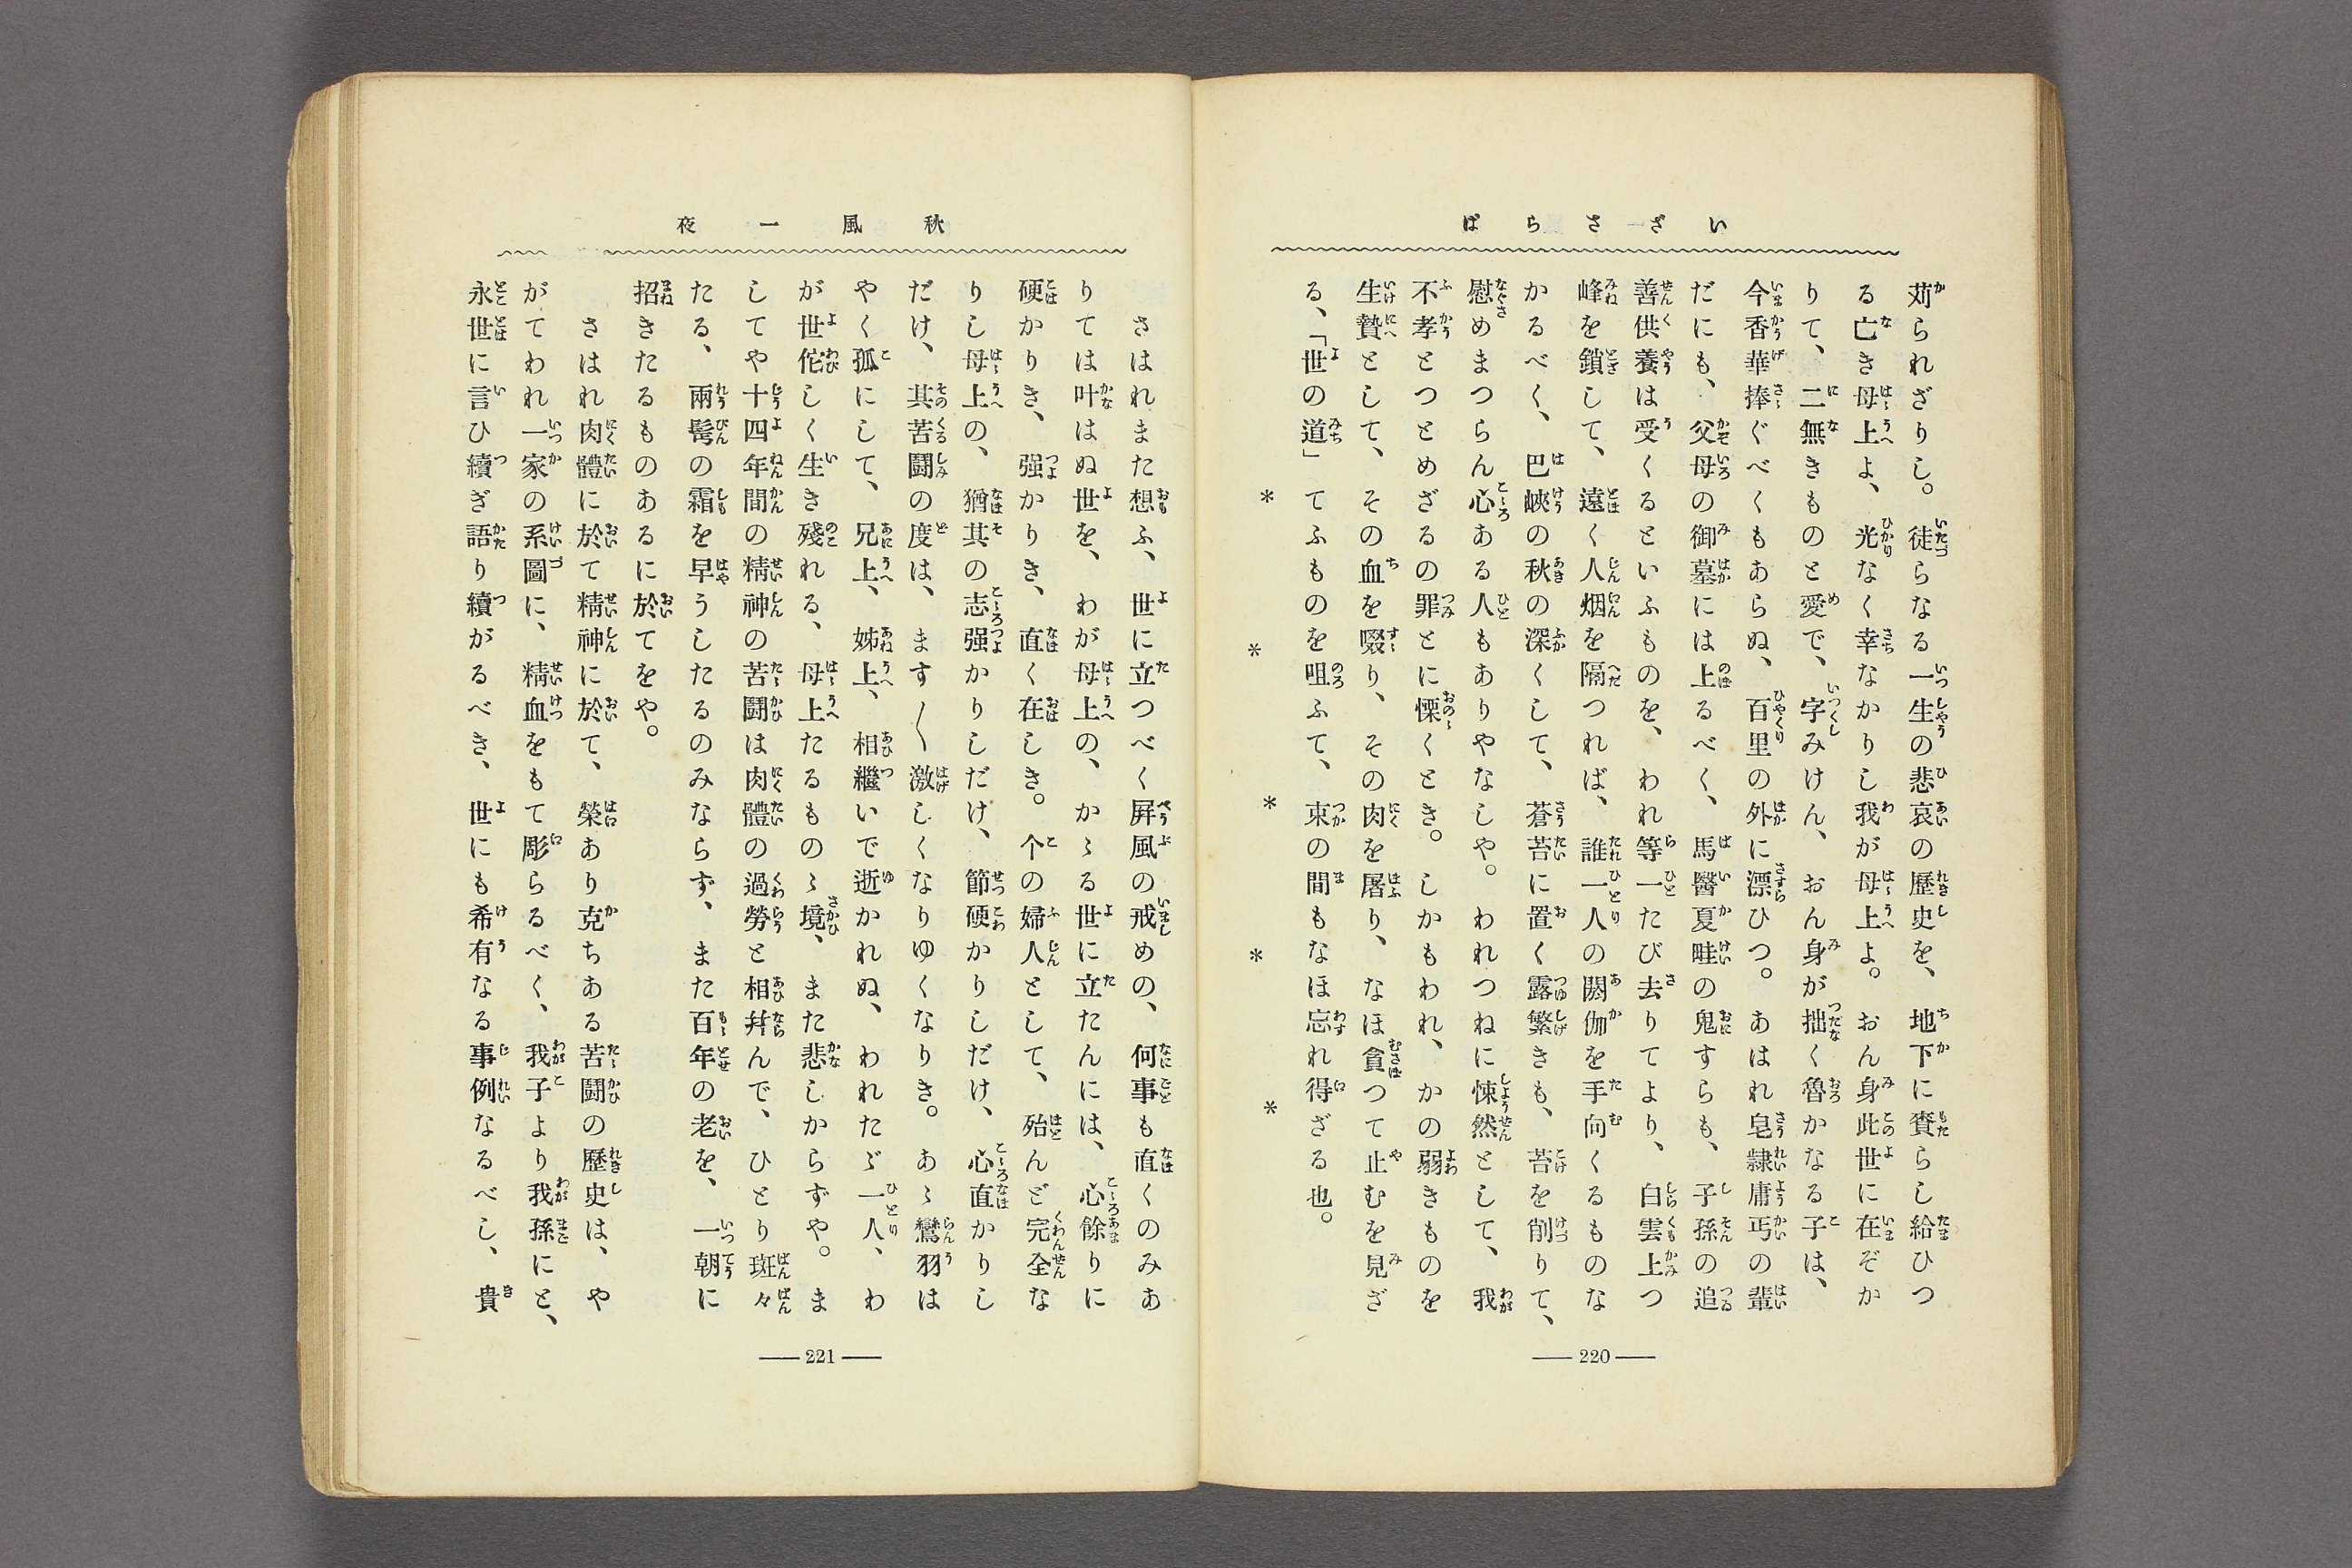 いざさらば
苅られざりし。徒らなる一生の悲哀の歴史を、地下に賚らし給ひつ
る亡き母上よ、光なく幸なかりし我が母上よ。おん身此世に在ぞか
りて、二無きものと愛で、字みけん、おん身が拙く魯かなる子は、
今香華捧ぐべくもあらぬ、百里の外に漂ひつ。あはれ皂隷庸丐の輩
だにも、父母の御墓には上るべく、馬醫夏畦の鬼すらも、子孫の追
善供養は受くるといふものを、われ等一たび去りてより、白雲上つ
峰を鎖して、遠く人烟を隔つれば、誰一人の閼伽を手向くるものな
かるべく、巴峽の秋の深くして、蒼苔に置く露繁きも、苔を削りて、
慰めまつらん心ある人もありやなしや。われつねに悚然として、我
不孝とつとめざるの罪とに慄くとき。しかもわれ、かの弱きものを
生贄として、その血を啜り、その肉を屠り、なほ貪つて止むを見ざ
る、「世の道」てふものを咀ふて、束の間もなほ忘れ得ざる也。
＊　＊　＊　＊　＊
— 220 —
秋風一夜
さはれまた想ふ、世に立つべく屏風の戒めの、何事も直くのみあ
りては叶はぬ世を、わが母上の、かゝる世に立たんには、心餘りに
硬かりき、强かりき、直く在しき。个の婦人として、殆んど完全な
りし母上の、猶其の志强かりしだけ、節硬かりしだけ、心直かりし
だけ、其苦鬪の度は、ます〱激しくなりゆくなりき。あゝ鸞羽は
やく孤にして、兄上、姊上、相繼いで逝かれぬ、われたゞ一人、わ
が世佗しく生き殘れる、母上たるものゝ境、また悲しからずや。ま
してや十四年間の精神の苦鬪は肉體の過勞と相幷んで、ひとり斑々
たる、兩髩の霜を早うしたるのみならず、また百年の老を、一朝に
招きたるものあるに於てをや。
さはれ肉體に於て精神に於て、榮あり克ちある苦鬪の歷史は、や
がてわれ一家の系圖に、精血をもて彫らるべく、我子より我孫にと、
永世に言ひ續ぎ語り續がるべき、世にも希有なる事例なるべし、貴
— 221 —